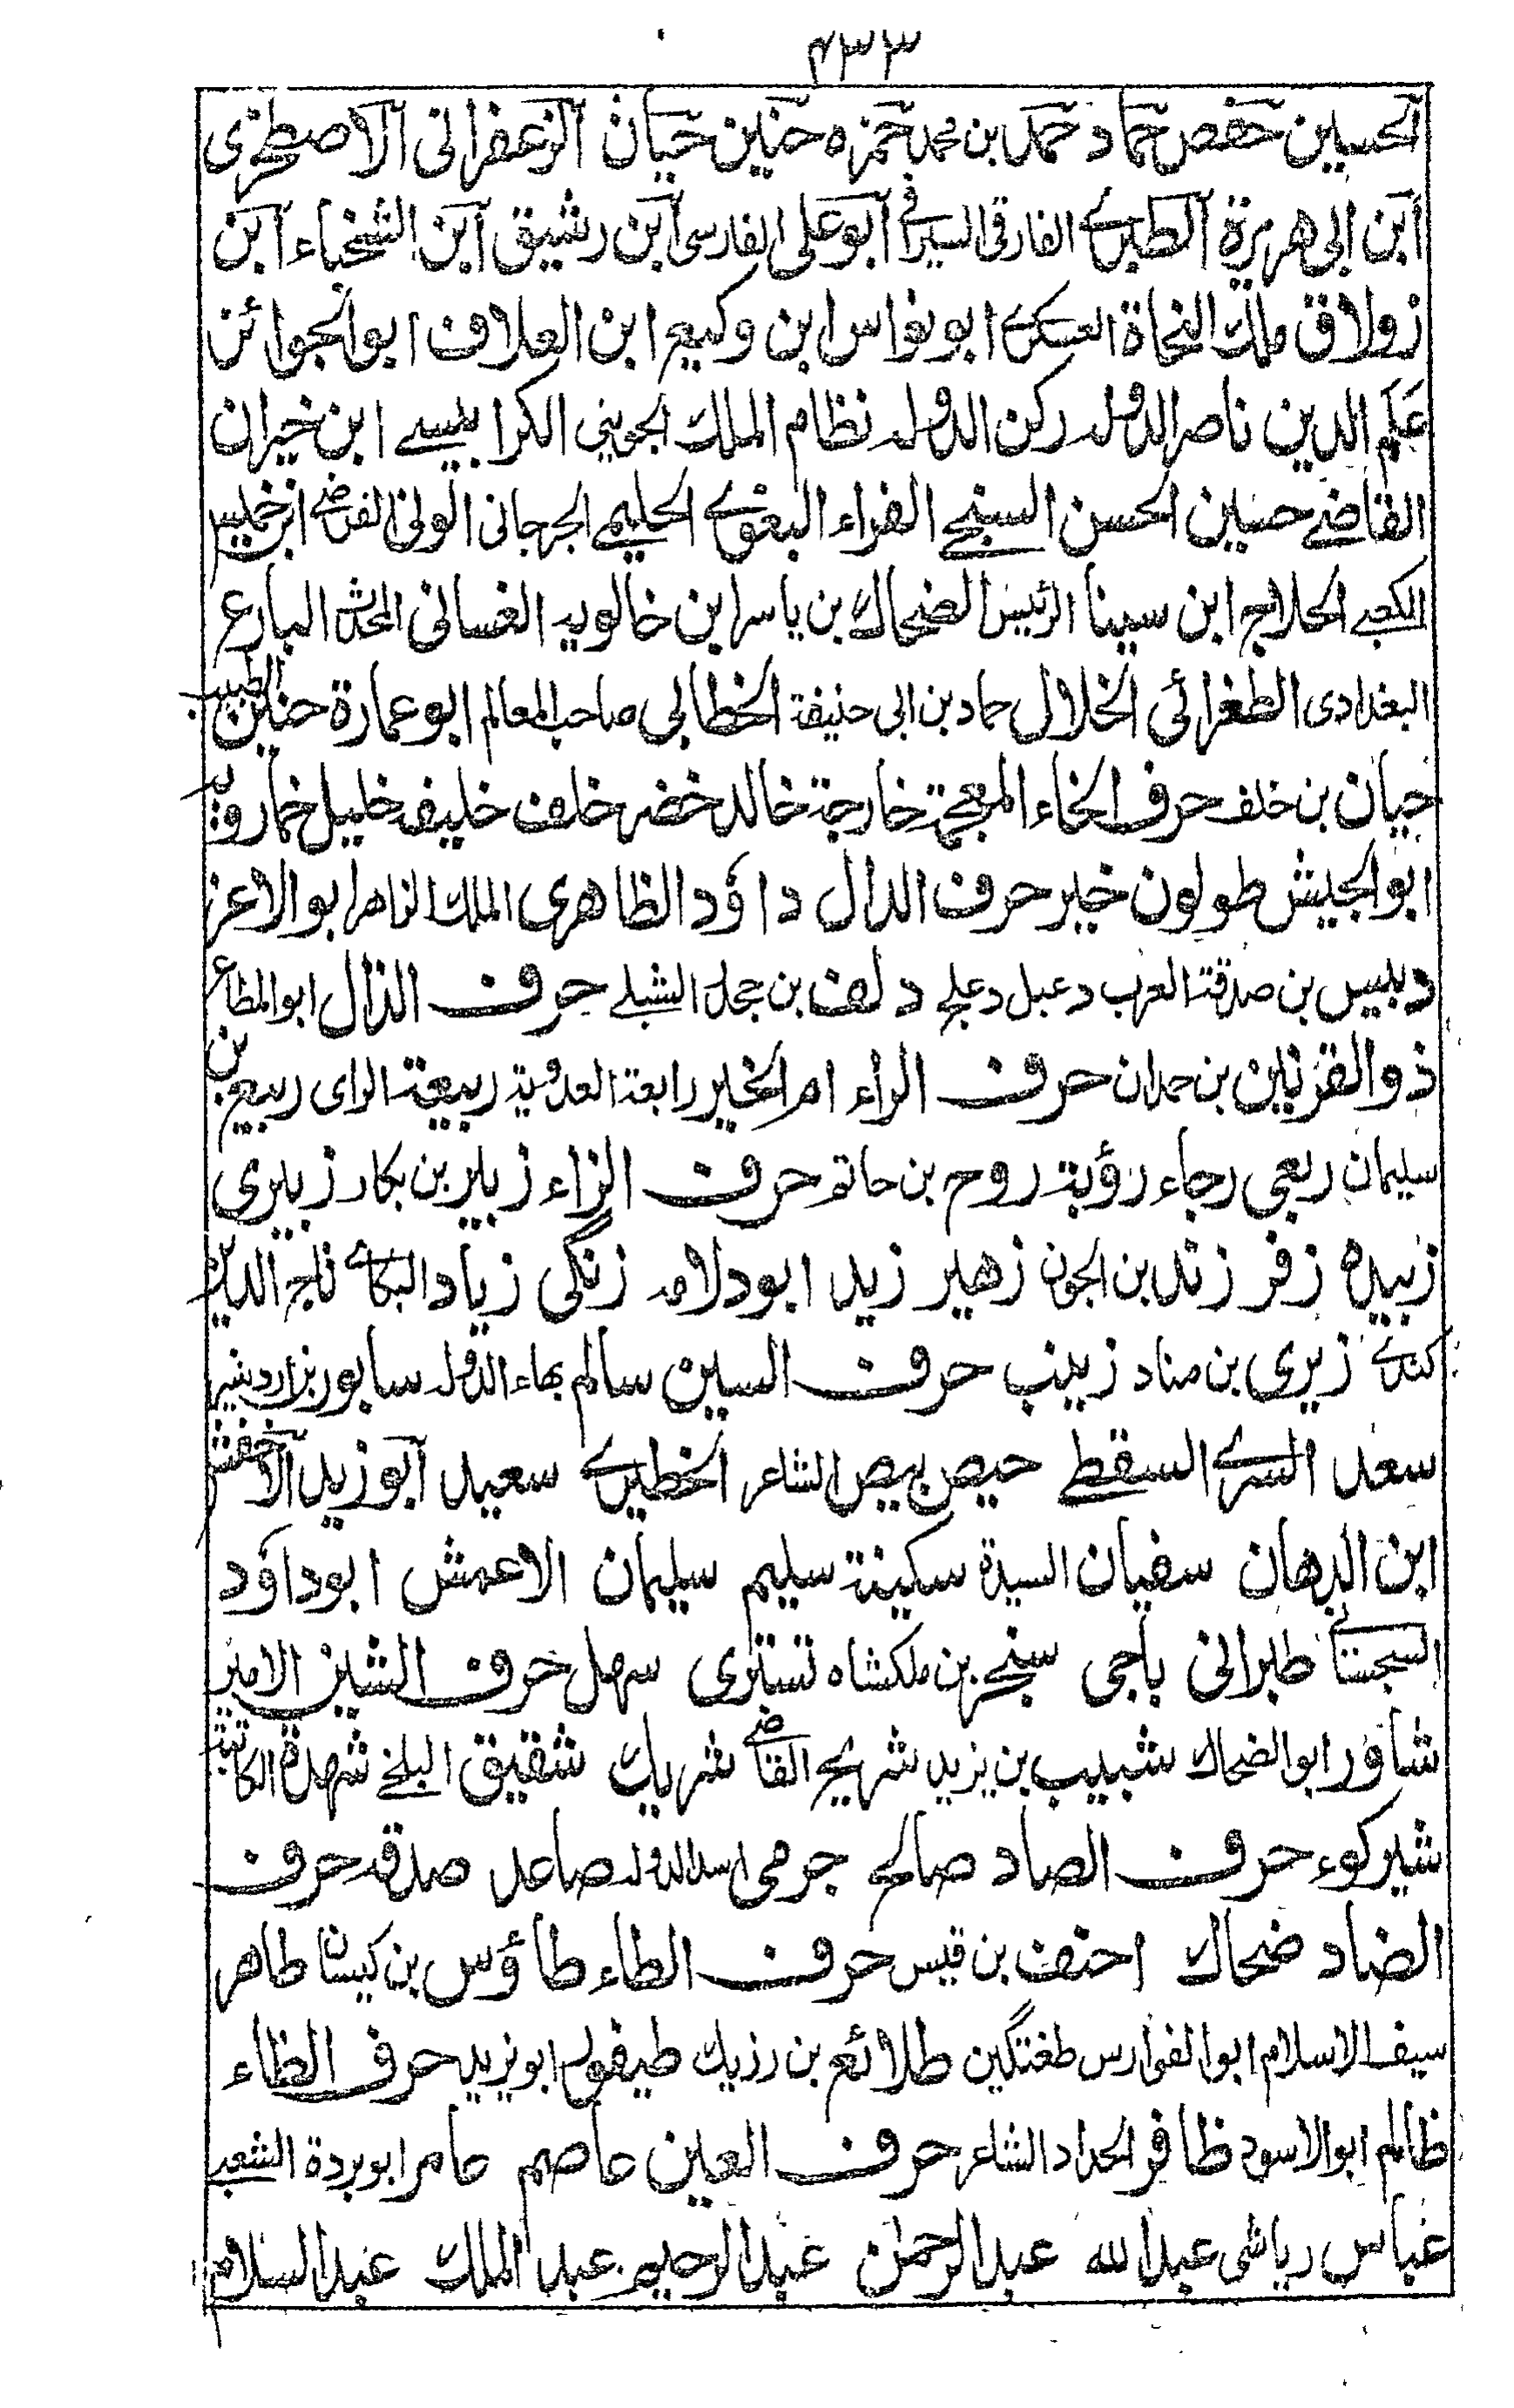 ۴۳۳
الحسین حفص حماد حمد بن محمد حمزه حنین حیان الزعفرانی الاصطخری
ابن ابی هریرة الطبری الفارقی السیرافی ابو علی الفارسی ابن رشیق ابن الشخباء ابن
زولاق ملک النحاة العسکری ابو نواس ابن وکیع ابن العلاف ابو الجوائز
علم الدین ناصر الدوله رکن الدوله نظام الملک الجوینی الکرابیسے ابن خیران
القاضے حسین الحسن السنجے الفراء البغوے الحلیمے الجرجانی الونی الفرضے ابن خمیس
الکعبے الحلاج ابن سینا الرئیس الضحاک بن یاسر ابن خالویه الغسانی المحدث البارع
البغدادی الطغرائی الخلال حماد بن ابی حنیفة الخطابی صاحب المعالم ابو عمارة حنین الطبیب
حیان بن خلف حرف الخاء المعجمة خارجة خالد خضر خلف خلیفه خلیل خمارویه
ابو الجیش طولون خیر حرف الدال داؤد الظاهری الملک الزاهر ابو الاعز
دبیس بن صدقة العرب دعبل دعلج دلف بن جحدر الشبلے حرف الذال ابو المطاع
ذو القرنین بن حمدان حرف الراء ام الخیر رابعة العدویة ربیعة الرای ربیع بن
سلیمان ربعی رجاء رؤبة روح بن حاتم حرف الزاء زبیر بن بکار زبیری
زبیده زفر زند بن الجون زهیر زید ابو دلامه زنگی زیاد البکاے تاج الدین
کندے زیری بن مناد زینب حرف السین سالم بهاء الدوله سابور بن اردشیر
سعد السرے السقطے حیص بیص الشاعر الخطیرے سعید ابو زید الاخفش
ابن الدهان سفیان السیدة سکینة سلیم سلیمان الاعمش ابو داؤد
السجستانے طبرانی باجی سنجر بن ملکشاه تستری سهل حرف الشین الامیر
شاور ابو الضحاک شبیب بن یزید شریح القاضے شریک شقیق البلخے شهدة الکاتبة
شیرکوء حرف الصاد صالح جرمی اسد الدوله صاعد صدقه حرف
الضاد ضحاک احنف بن قیس حرف الطاء طاؤس بن کیسان طاهر
سیف الاسلام ابو الفوارس طغتگین طلائع بن رزیک طیفور ابو یزید حرف الظاء
ظالم ابو الاسود ظافر الحداد الشاعر حرف العین عاصم عامر ابو بردة الشعبے
عباس ریاشی عبد الله عبد الرحمن عبد الرحیم عبد الملک عبد السلام